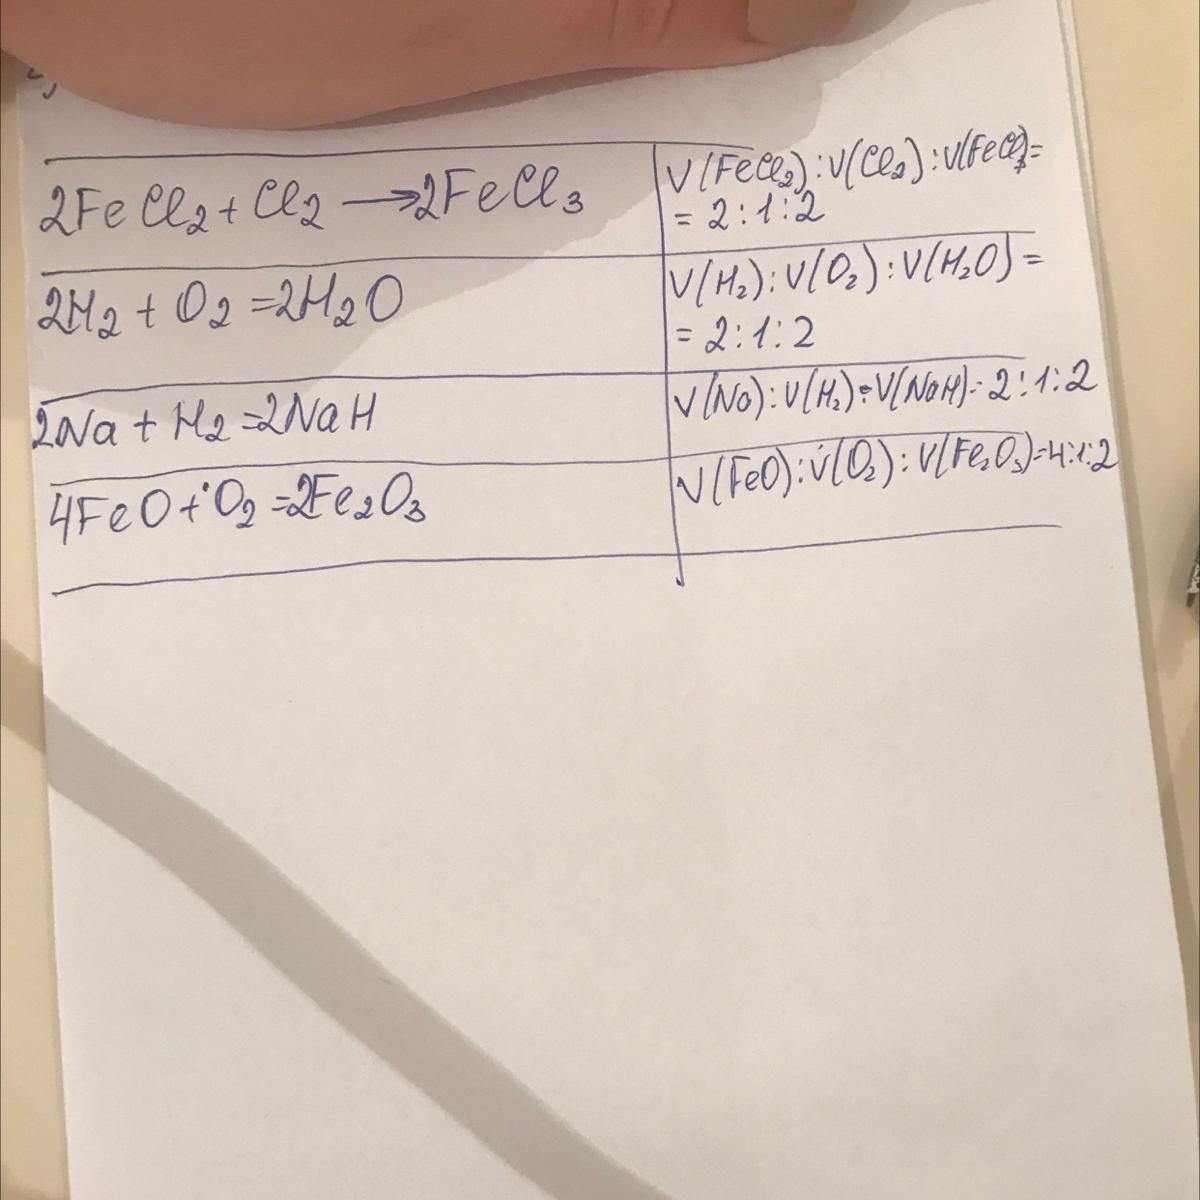 2FeCl₂ + Cl₂ → 2FeCl₃
V(FeCl₂) : V(Cl₂) : V(FeCl₃) =
= 2 : 1 : 2
2H₂ + O₂ = 2H₂O
V(H₂) : V(O₂) : V(H₂O) =
= 2 : 1 : 2
2Na + H₂ = 2NaH
V(Na) : V(H₂) : V(NaH) = 2 : 1 : 2
4FeO + O₂ = 2Fe₂O₃
V(FeO) : V(O₂) : V(Fe₂O₃) = 4:1:2